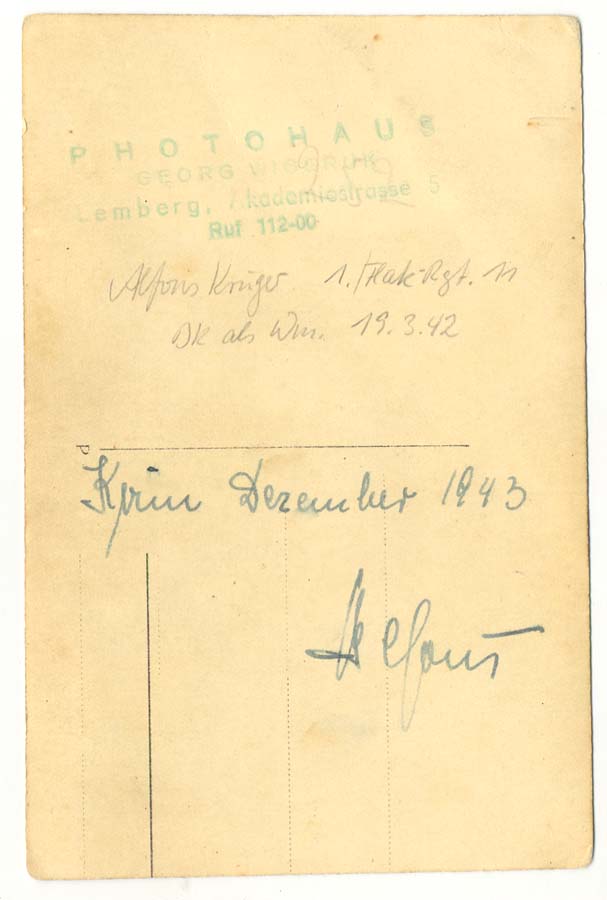 PHOTOHAUS
GEORG
Lemberg, Akademiestrasse 5
Ruf 112-00
Alfons Krüger 1./Flak-Rgt. 11
DK als Wm. 19.3.42
P
Krim Dezember 1943
Alfons